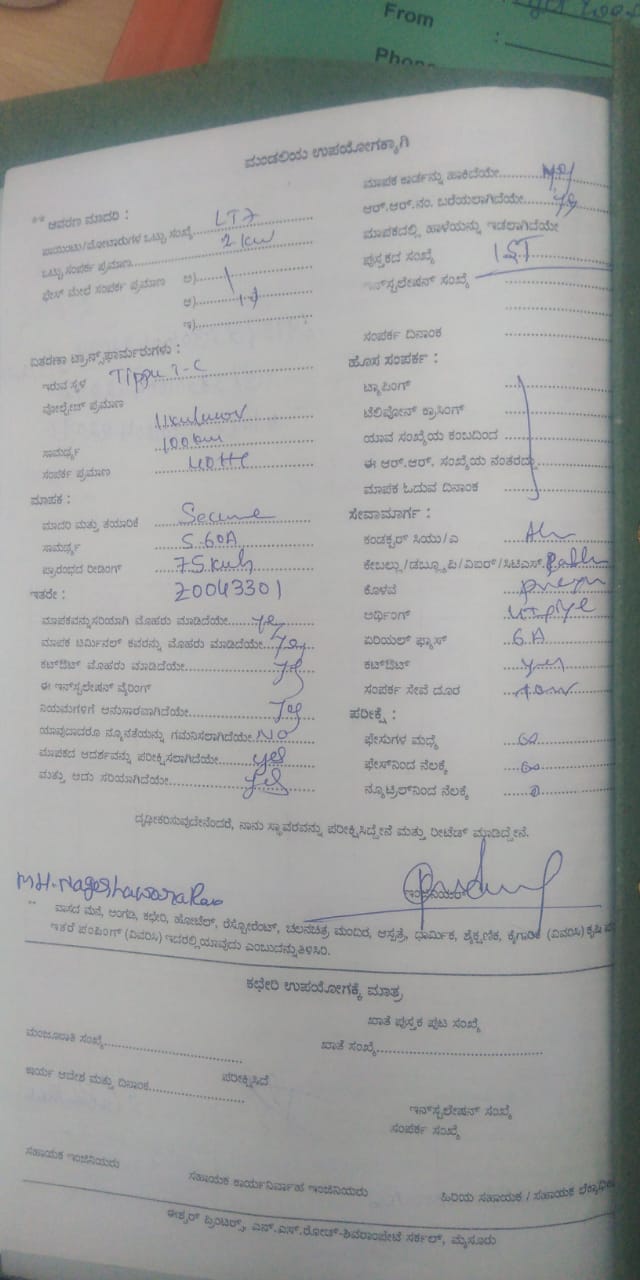 From :
Phone
ಮಂಡಲಿಯ ಉಪಯೋಗಕ್ಕಾಗಿ
** ಆವರಣ ಮಾದರಿ :
ಪಾಯಿಂಟು/ಮೋಟಾರುಗಳ ಒಟ್ಟು ಸಂಖ್ಯೆ LT7
ಒಟ್ಟು ಸಂಪರ್ಕ ಪ್ರಮಾಣ 2 kw
ಫೇಸ್ ಮೇಲೆ ಸಂಪರ್ಕ ಪ್ರಮಾಣ ಅ)
ಆ)
ಇ)
ವಿತರಣಾ ಟ್ರಾನ್ಸ್‌ಫಾರ್ಮರುಗಳು :
ಇರುವ ಸ್ಥಳ Tippu
ವೋಲ್ಟೇಜ್ ಪ್ರಮಾಣ
ಸಾಮರ್ಥ್ಯ 100
ಸಂಪರ್ಕ ಪ್ರಮಾಣ
ಮಾಪಕ :
ಮಾದರಿ ಮತ್ತು ತಯಾರಿಕೆ Secure
ಸಾಮರ್ಥ್ಯ 5-60A
ಪ್ರಾರಂಭದ ರೀಡಿಂಗ್ 75 kwh
ಇತರೇ : Z0043301
ಮಾಪಕವನ್ನು ಸರಿಯಾಗಿ ಮೊಹರು ಮಾಡಿದೆಯೇ yes
ಮಾಪಕ ಟರ್ಮಿನಲ್ ಕವರನ್ನು ಮೊಹರು ಮಾಡಿದೆಯೇ yes
ಕಟ್‌ಔಟ್ ಮೊಹರು ಮಾಡಿದೆಯೇ yes
ಈ ಇನ್‌ಸ್ಟಲೇಷನ್ ವೈರಿಂಗ್
ನಿಯಮಗಳಿಗೆ ಅನುಸಾರವಾಗಿದೆಯೇ yes
ಯಾವುದಾದರೂ ನ್ಯೂನತೆಯನ್ನು ಗಮನಿಸಲಾಗಿದೆಯೇ NO
ಮಾಪಕದ ಆದರ್ಶವನ್ನು ಪರೀಕ್ಷಿಸಲಾಗಿದೆಯೇ yes
ಮತ್ತು ಅದು ಸರಿಯಾಗಿದೆಯೇ yes
ಮಾಪಕ ಕಾರ್ಡನ್ನು ಹಾಕಿದೆಯೇ
ಆರ್.ಆರ್.ನಂ. ಬರೆಯಲಾಗಿದೆಯೇ yes
ಮಾಪಕದಲ್ಲಿ ಹಾಳೆಯನ್ನು ಇಡಲಾಗಿದೆಯೇ
ಪುಸ್ತಕದ ಸಂಖ್ಯೆ IST
ಇನ್‌ಸ್ಟಲೇಷನ್ ಸಂಖ್ಯೆ
ಸಂಪರ್ಕ ದಿನಾಂಕ
ಹೊಸ ಸಂಪರ್ಕ :
ಟ್ಯಾಪಿಂಗ್
ಟೆಲಿಫೋನ್ ಕ್ರಾಸಿಂಗ್
ಯಾವ ಸಂಖ್ಯೆಯ ಕಂಬದಿಂದ
ಈ ಆರ್.ಆರ್. ಸಂಖ್ಯೆಯ ನಂತರದ್ದು
ಮಾಪಕ ಓದುವ ದಿನಾಂಕ
ಸೇವಾಮಾರ್ಗ :
ಕಂಡಕ್ಟರ್ ಸಿಯು/ಎ
ಕೇಬಲ್ಲು/ಡಬ್ಲ್ಯೂಪಿ/ವಿಐರ್/ಸಿಟಿಎಸ್
ಕೊಳವೆ
ಅರ್ಥಿಂಗ್
ಏರಿಯಲ್ ಫ್ಯೂಸ್ 6 A
ಕಟ್‌ಔಟ್ yes
ಸಂಪರ್ಕ ಸೇವೆ ದೂರ
ಪರೀಕ್ಷೆ :
ಫೇಸುಗಳ ಮಧ್ಯೆ
ಫೇಸ್‌ನಿಂದ ನೆಲಕ್ಕೆ
ನ್ಯೂಟ್ರಲ್‌ನಿಂದ ನೆಲಕ್ಕೆ
ದೃಢೀಕರಿಸುವುದೇನೆಂದರೆ, ನಾನು ಸ್ಥಾವರವನ್ನು ಪರೀಕ್ಷಿಸಿದ್ದೇನೆ ಮತ್ತು ರೀಟೆಡ್ ಮಾಡಿದ್ದೇನೆ.
M.H. Nageshawara Rao
ಇಂಜಿನಿಯರ್
** ವಾಸದ ಮನೆ, ಅಂಗಡಿ, ಕಛೇರಿ, ಹೋಟೆಲ್, ರೆಸ್ಟೋರೆಂಟ್, ಚಲನಚಿತ್ರ ಮಂದಿರ, ಆಸ್ಪತ್ರೆ, ಧಾರ್ಮಿಕ, ಶೈಕ್ಷಣಿಕ, ಕೈಗಾರಿಕೆ (ವಿವರಿಸಿ) ಕೃಷಿ
ಇತರೆ ಪಂಪಿಂಗ್ (ವಿವರಿಸಿ) ಇದರಲ್ಲಿ ಯಾವುದು ಎಂಬುದನ್ನು ತಿಳಿಸಿರಿ.
ಕಛೇರಿ ಉಪಯೋಗಕ್ಕೆ ಮಾತ್ರ
ಖಾತೆ ಪುಸ್ತಕ ಪುಟ ಸಂಖ್ಯೆ
ಮಂಜೂರಾತಿ ಸಂಖ್ಯೆ ಖಾತೆ ಸಂಖ್ಯೆ
ಕಾರ್ಯ ಆದೇಶ ಮತ್ತು ದಿನಾಂಕ ಪರೀಕ್ಷಿಸಿದೆ
ಇನ್‌ಸ್ಟಲೇಷನ್ ಸಂಖ್ಯೆ
ಸಂಪರ್ಕ ಸಂಖ್ಯೆ
ಸಹಾಯಕ ಇಂಜಿನಿಯರು ಸಹಾಯಕ ಕಾರ್ಯನಿರ್ವಾಹ ಇಂಜಿನಿಯರು ಹಿರಿಯ ಸಹಾಯಕ / ಸಹಾಯಕ
ಈಶ್ವರ್ ಪ್ರಿಂಟರ್ಸ್, ಎನ್.ಎಸ್.ರೋಡ್-ಶಿವರಾಂಪೇಟೆ ಸರ್ಕಲ್, ಮೈಸೂರು